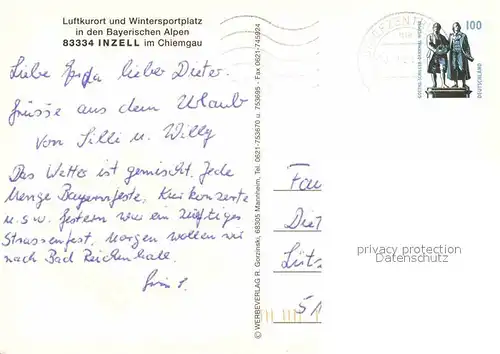 Luftkurort und Wintersportplatz
in den Bayerischen Alpen
83334 INZELL im Chiemgau
Liebe lieber Dieter
Grüsse aus dem Urlaub
von Silli u. Willy
Das Wetter ist gemischt. Jede
Menge Bayernfeste, Kurkonzerte
u.s.w. Gestern war ein zünftiges
Strassenfest, Morgen wollen wir
nach Bad Reichenhall.
© WERBEVERLAG R. Gorzinski, 68305 Mannheim, Tel. 0621-753670 u. 753695 - Fax 0621-745924
100
GOETHE-SCHILLER-DENKMAL WEIMAR
DEUTSCHLAND
Diet
Lüts
51
privacy protection
Datenschutz